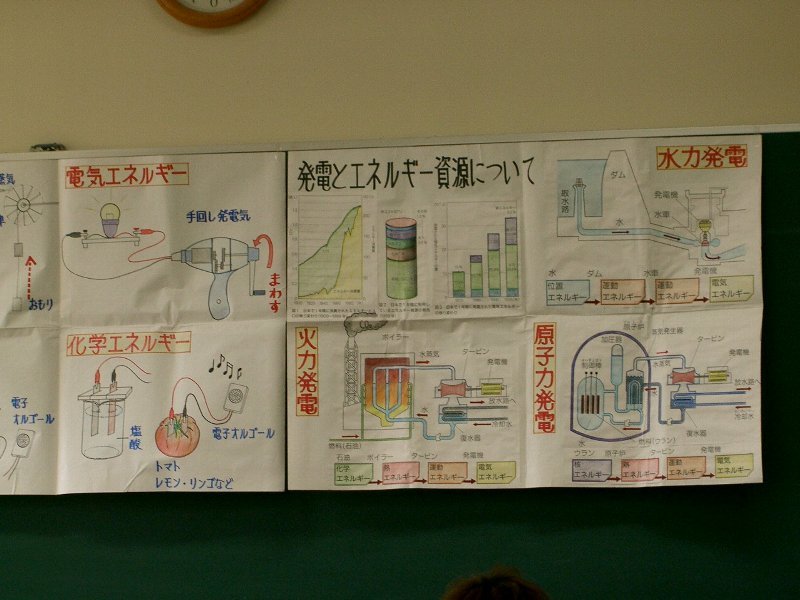 蒸気
おもり
電子
オルゴール
電気エネルギー
手回し発電気
まわす
化学エネルギー
塩
酸
電子オルゴール
トマト
レモン・リンゴなど
発電とエネルギー資源について
水力発電
ダム
取水路
水
発電機
水車
発電機
水 ダム 水車
位置
エネルギー
運動
エネルギー
運動
エネルギー
電気
エネルギー
火力発電
ボイラー
水蒸気
タービン
発電機
水
冷却水
復水器
燃料(石油)
石油 ボイラー タービン 発電機
化学
エネルギー
熱
エネルギー
運動
エネルギー
電気
エネルギー
原子力発電
原子炉
加圧器
蒸気発生器
制御棒
水蒸気
タービン
発電機
放水路へ
冷却水
水
復水器
燃料(ウラン)
ウラン 原子炉 タービン 発電機
核
エネルギー
熱
エネルギー
運動
エネルギー
電気
エネルギー